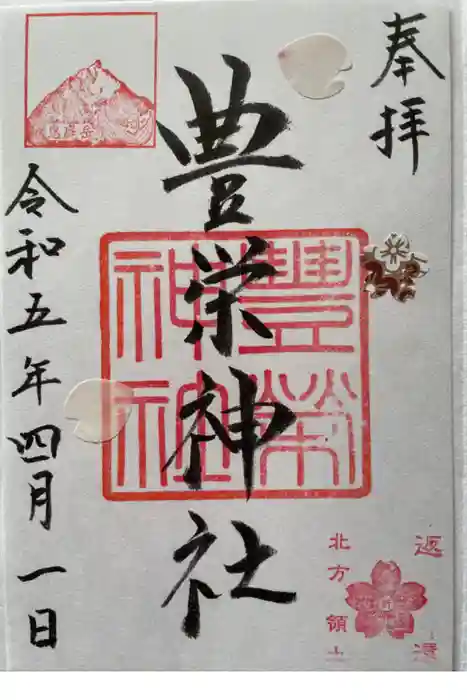 奉拝
豊栄神社
豊榮神社
令和五年四月一日
返還
北方領土